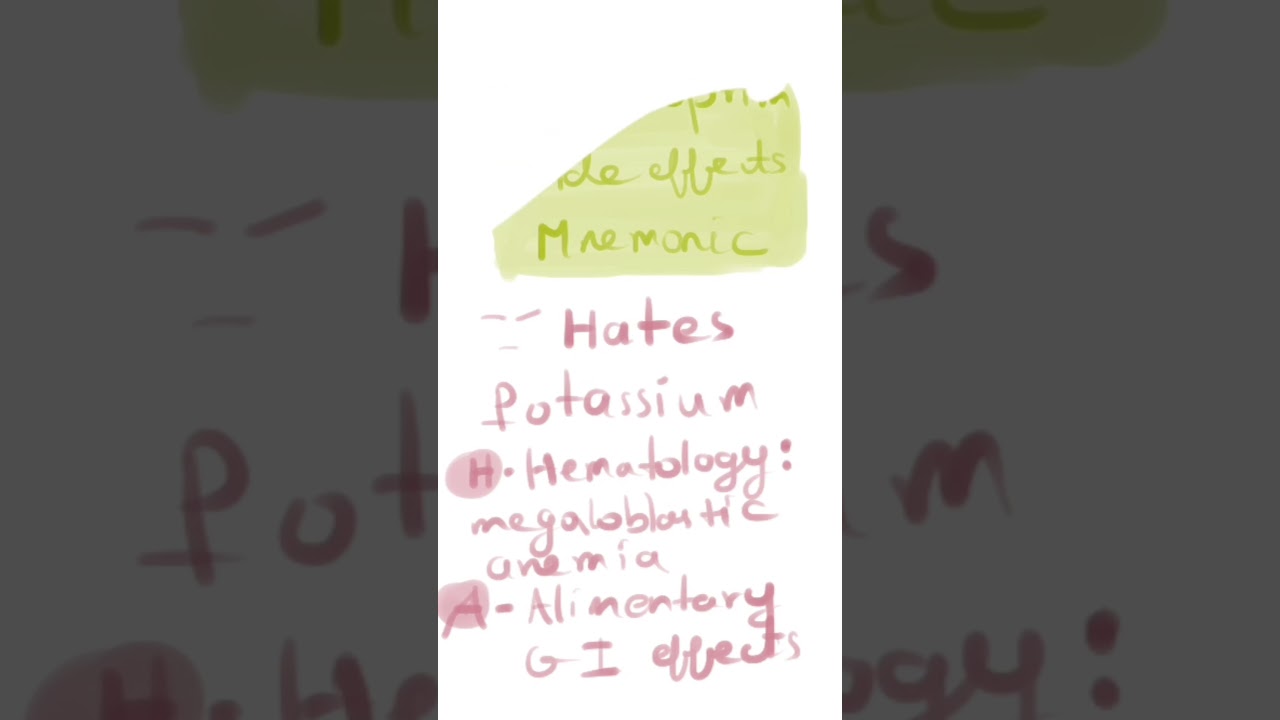 effects
Mnemonic
Hates
Potassium
H. Hematology:
megaloblastic
anemia
A- Alimentary
GI effects